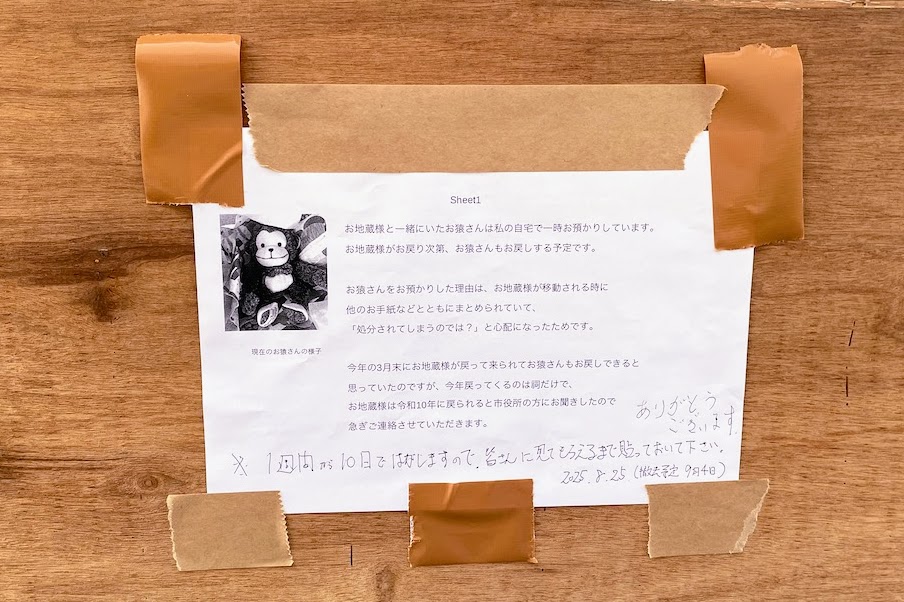 Sheet1
お地蔵様と一緒にいたお猿さんは私の自宅で一時お預かりしています。
お地蔵様がお戻り次第、お猿さんもお戻しする予定です。
お猿さんをお預かりした理由は、お地蔵様が移動される時に
他のお手紙などとともにまとめられていて、
「処分されてしまうのでは?」と心配になったためです。
現在のお猿さんの様子
今年の3月末にお地蔵様が戻って来られてお猿さんもお戻しできると
思っていたのですが、今年戻ってくるのは祠だけで、
お地蔵様は令和10年に戻られると市役所の方にお聞きしたので
急ぎご連絡させていただきます。
ありがとう
ございます。
※ 1週間から10日ではがしますので、皆さんに見てもらえるまで貼っておいて下さい。
2025.8.25 (撤去予定 9月4日)